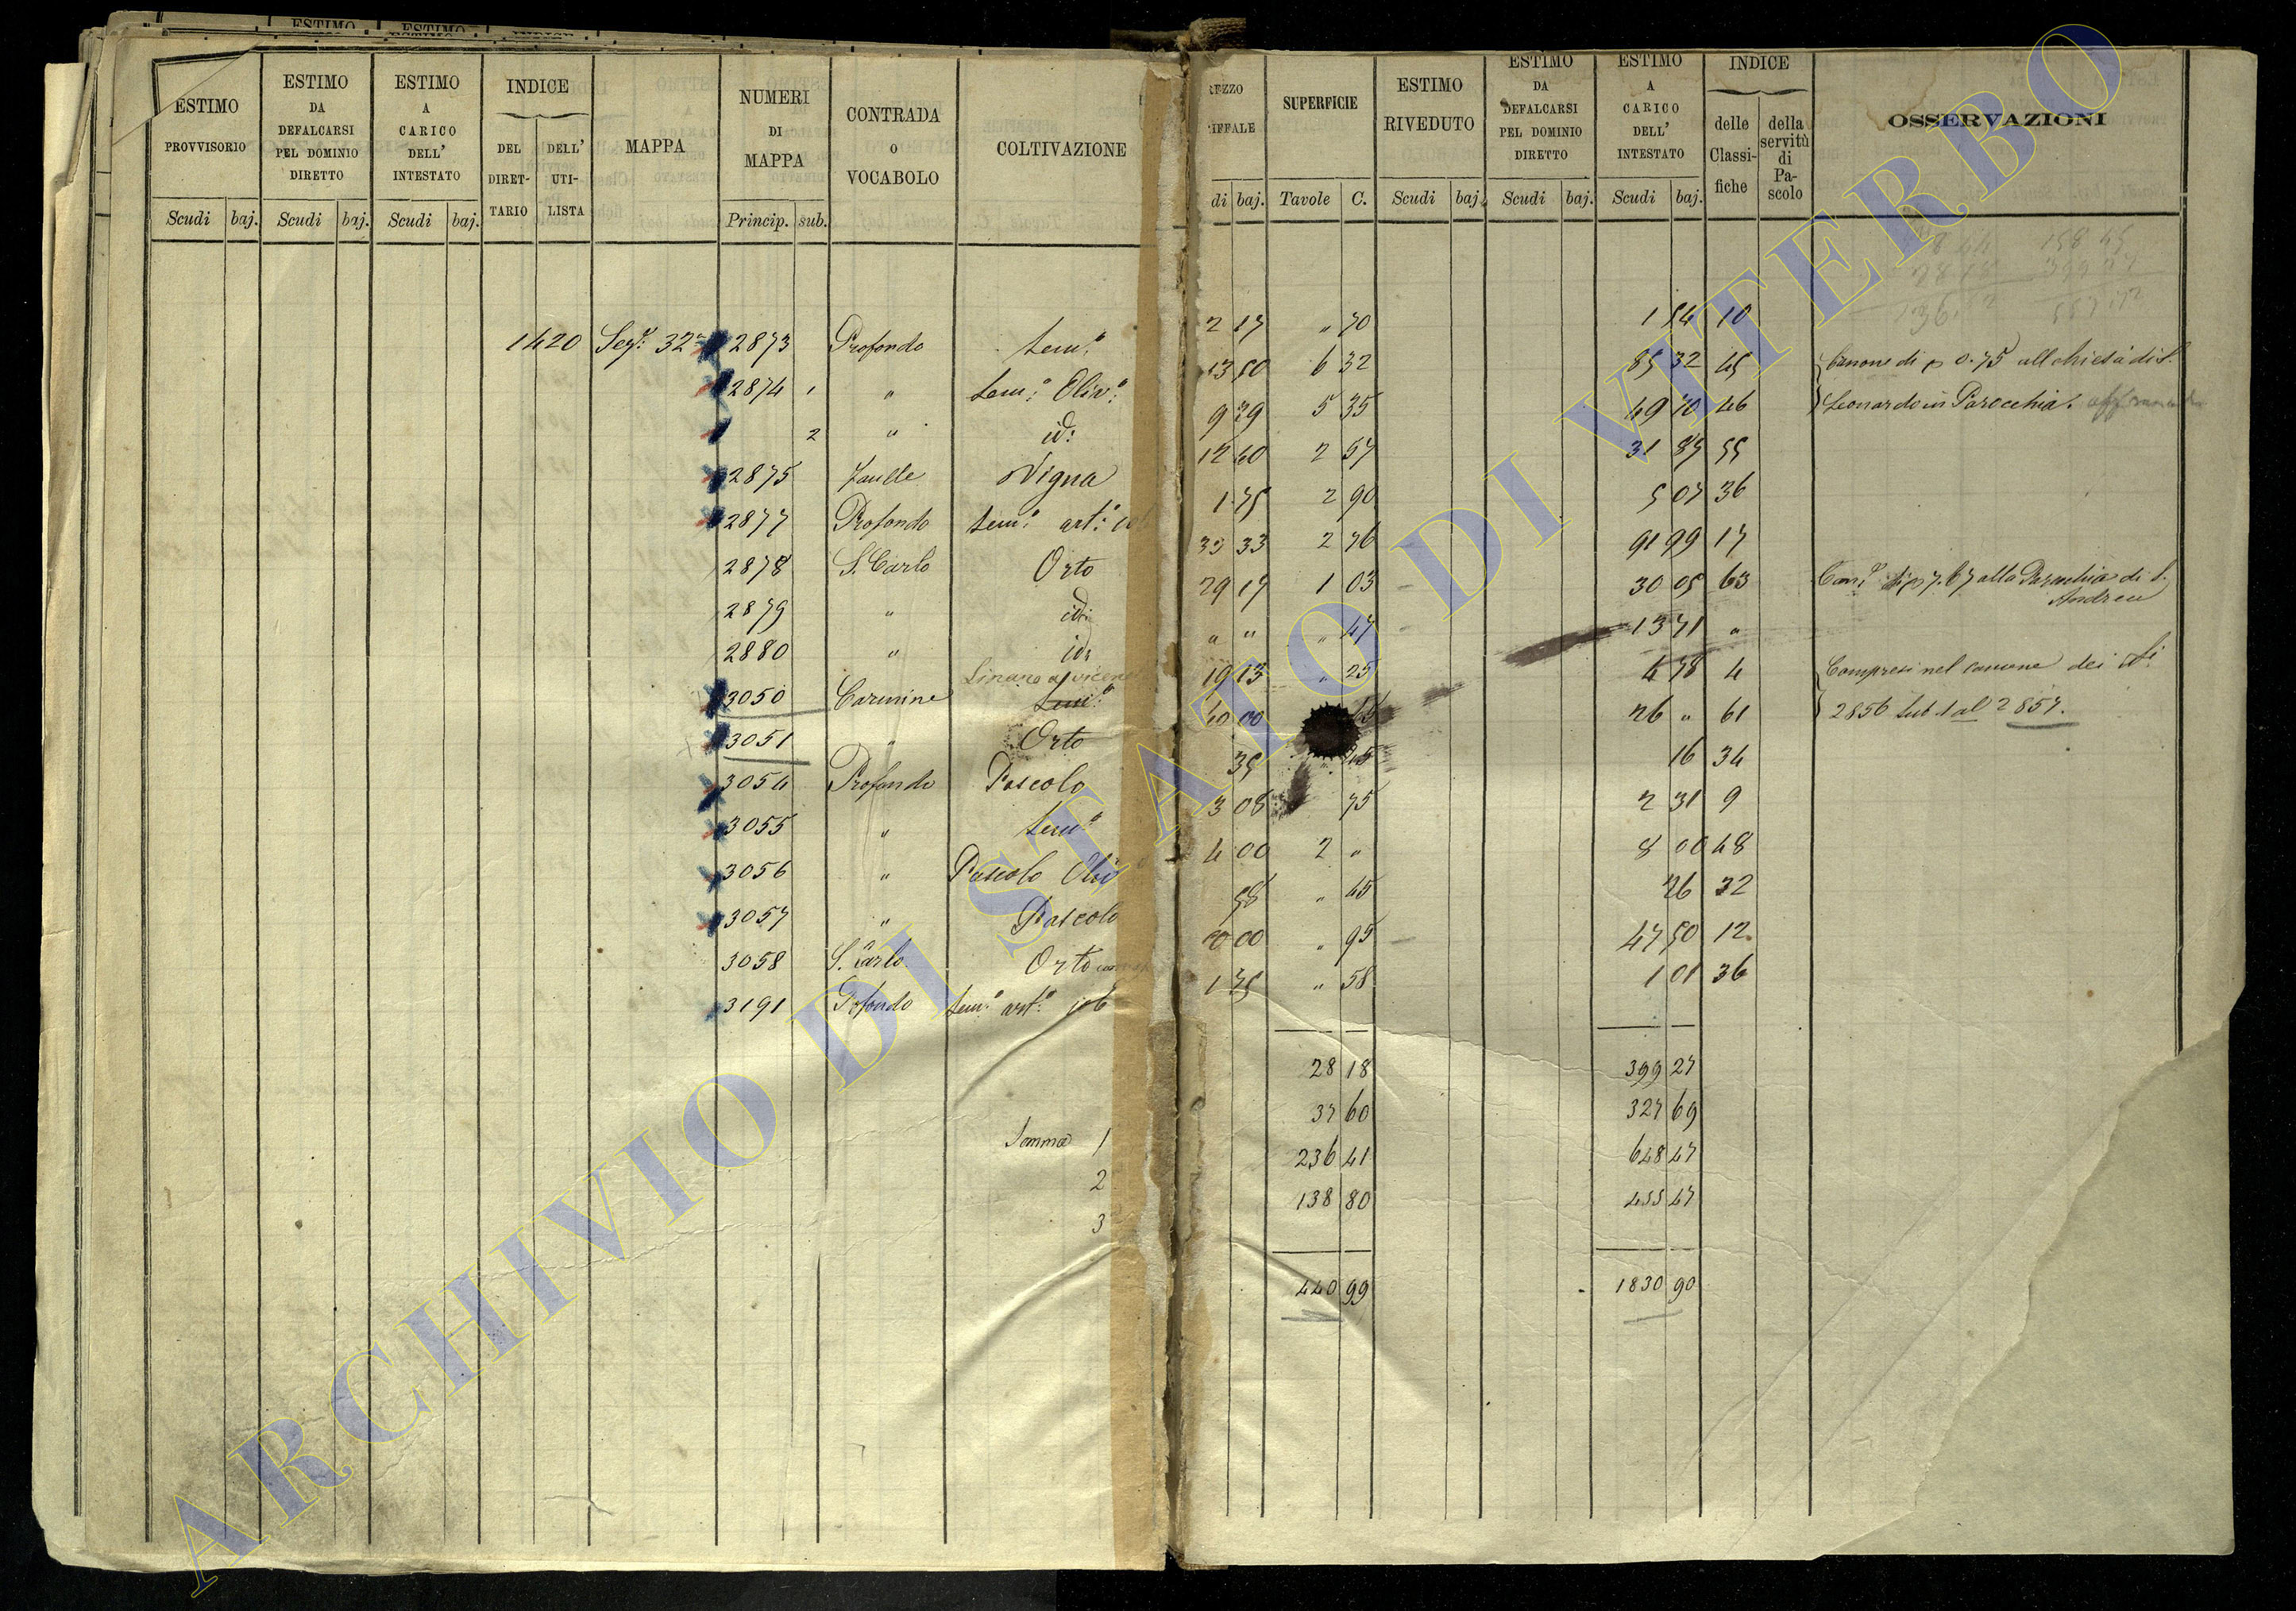 ESTIMO PROVVISORIO
ESTIMO DA DEFALCARSI PEL DOMINIO DIRETTO
ESTIMO A CARICO DELL' INTESTATO
INDICE
DEL DIRETTARIO
DELL' UTILISTA
MAPPA
NUMERI DI MAPPA
CONTRADA O VOCABOLO
COLTIVAZIONE
SUPERFICIE
ESTIMO RIVEDUTO
ESTIMO DA DEFALCARSI PEL DOMINIO DIRETTO
ESTIMO A CARICO DELL' INTESTATO
INDICE
delle Classifiche
della servitù di Pascolo
OSSERVAZIONI
Scudi baj. Scudi baj. Scudi baj. Princip. sub. di baj. Tavole C. Scudi baj. Scudi baj. Scudi baj.
1420 2873 Profondo Sem.º 2 17 " 70 1 54 10
2874 1 " Sem.º Oliv.º 13 50 6 32 85 32 45 Canone di 0.75 all chiesa di S.
2 " id: 9 29 5 35 49 70 46 Leonardo in Parocchia.
2875 Vigna 12 40 2 57 31 87 55
2877 Profondo Sem.º art.º 1 75 2 90 5 07 36
2878 S. Carlo Orto 33 33 2 76 91 99 17
2879 " id: 29 17 1 03 30 05 63 7.67 alla Parochia di S. Andrea
2880 " id: " " " 47 13 71 "
3050 Carmine Sem.º 19 13 " 25 4 78 4 Compresi nel canone dei
3051 " Orto 40 00 26 " 61 2856 sub 1 al 2857.
3054 Profondo Pascolo 35 " 45 16 34
3055 " Sem.º 3 08 75 2 31 9
3056 " Pascolo 4 00 2 " 8 00 48
3057 " Pascolo 58 " 45 26 32
3058 S. Carlo Orto 00 " 95 47 50 12
3191 Profondo Sem.º art.º 1 75 " 58 1 01 36
28 18 399 27
Somma 1 37 60 327 69
2 236 41 648 47
3 138 80 455 47
440 99 1830 90
ARCHIVIO DI STATO DI VITERBO